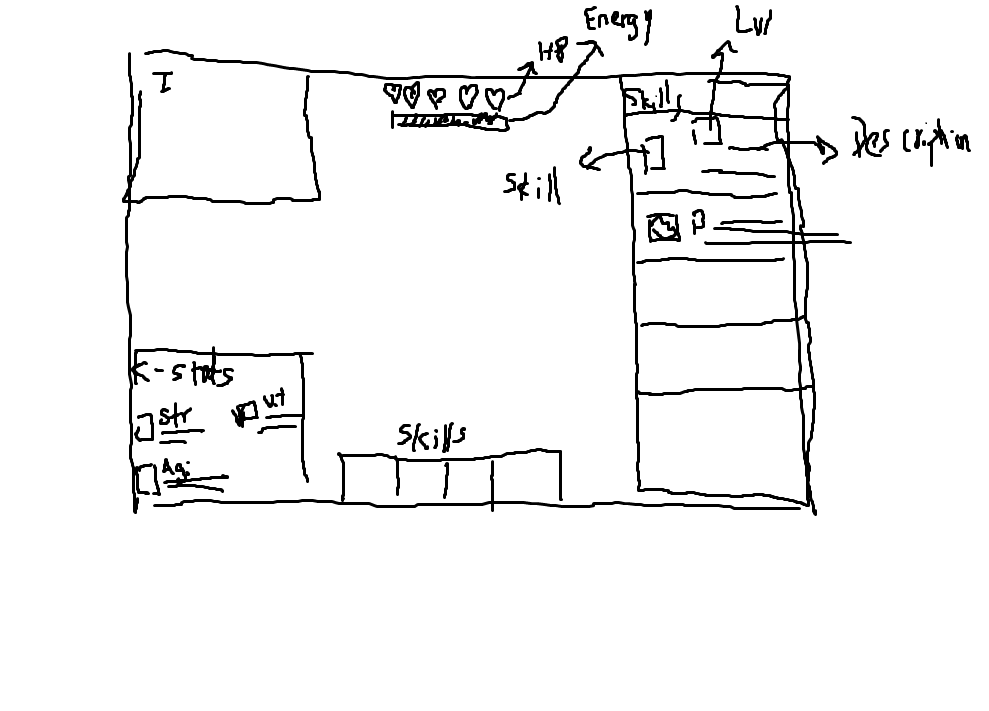 Energy
Lvl
HP
I
Skills
Description
Skill
P
K-stats
Str
vit
Agi
Skills